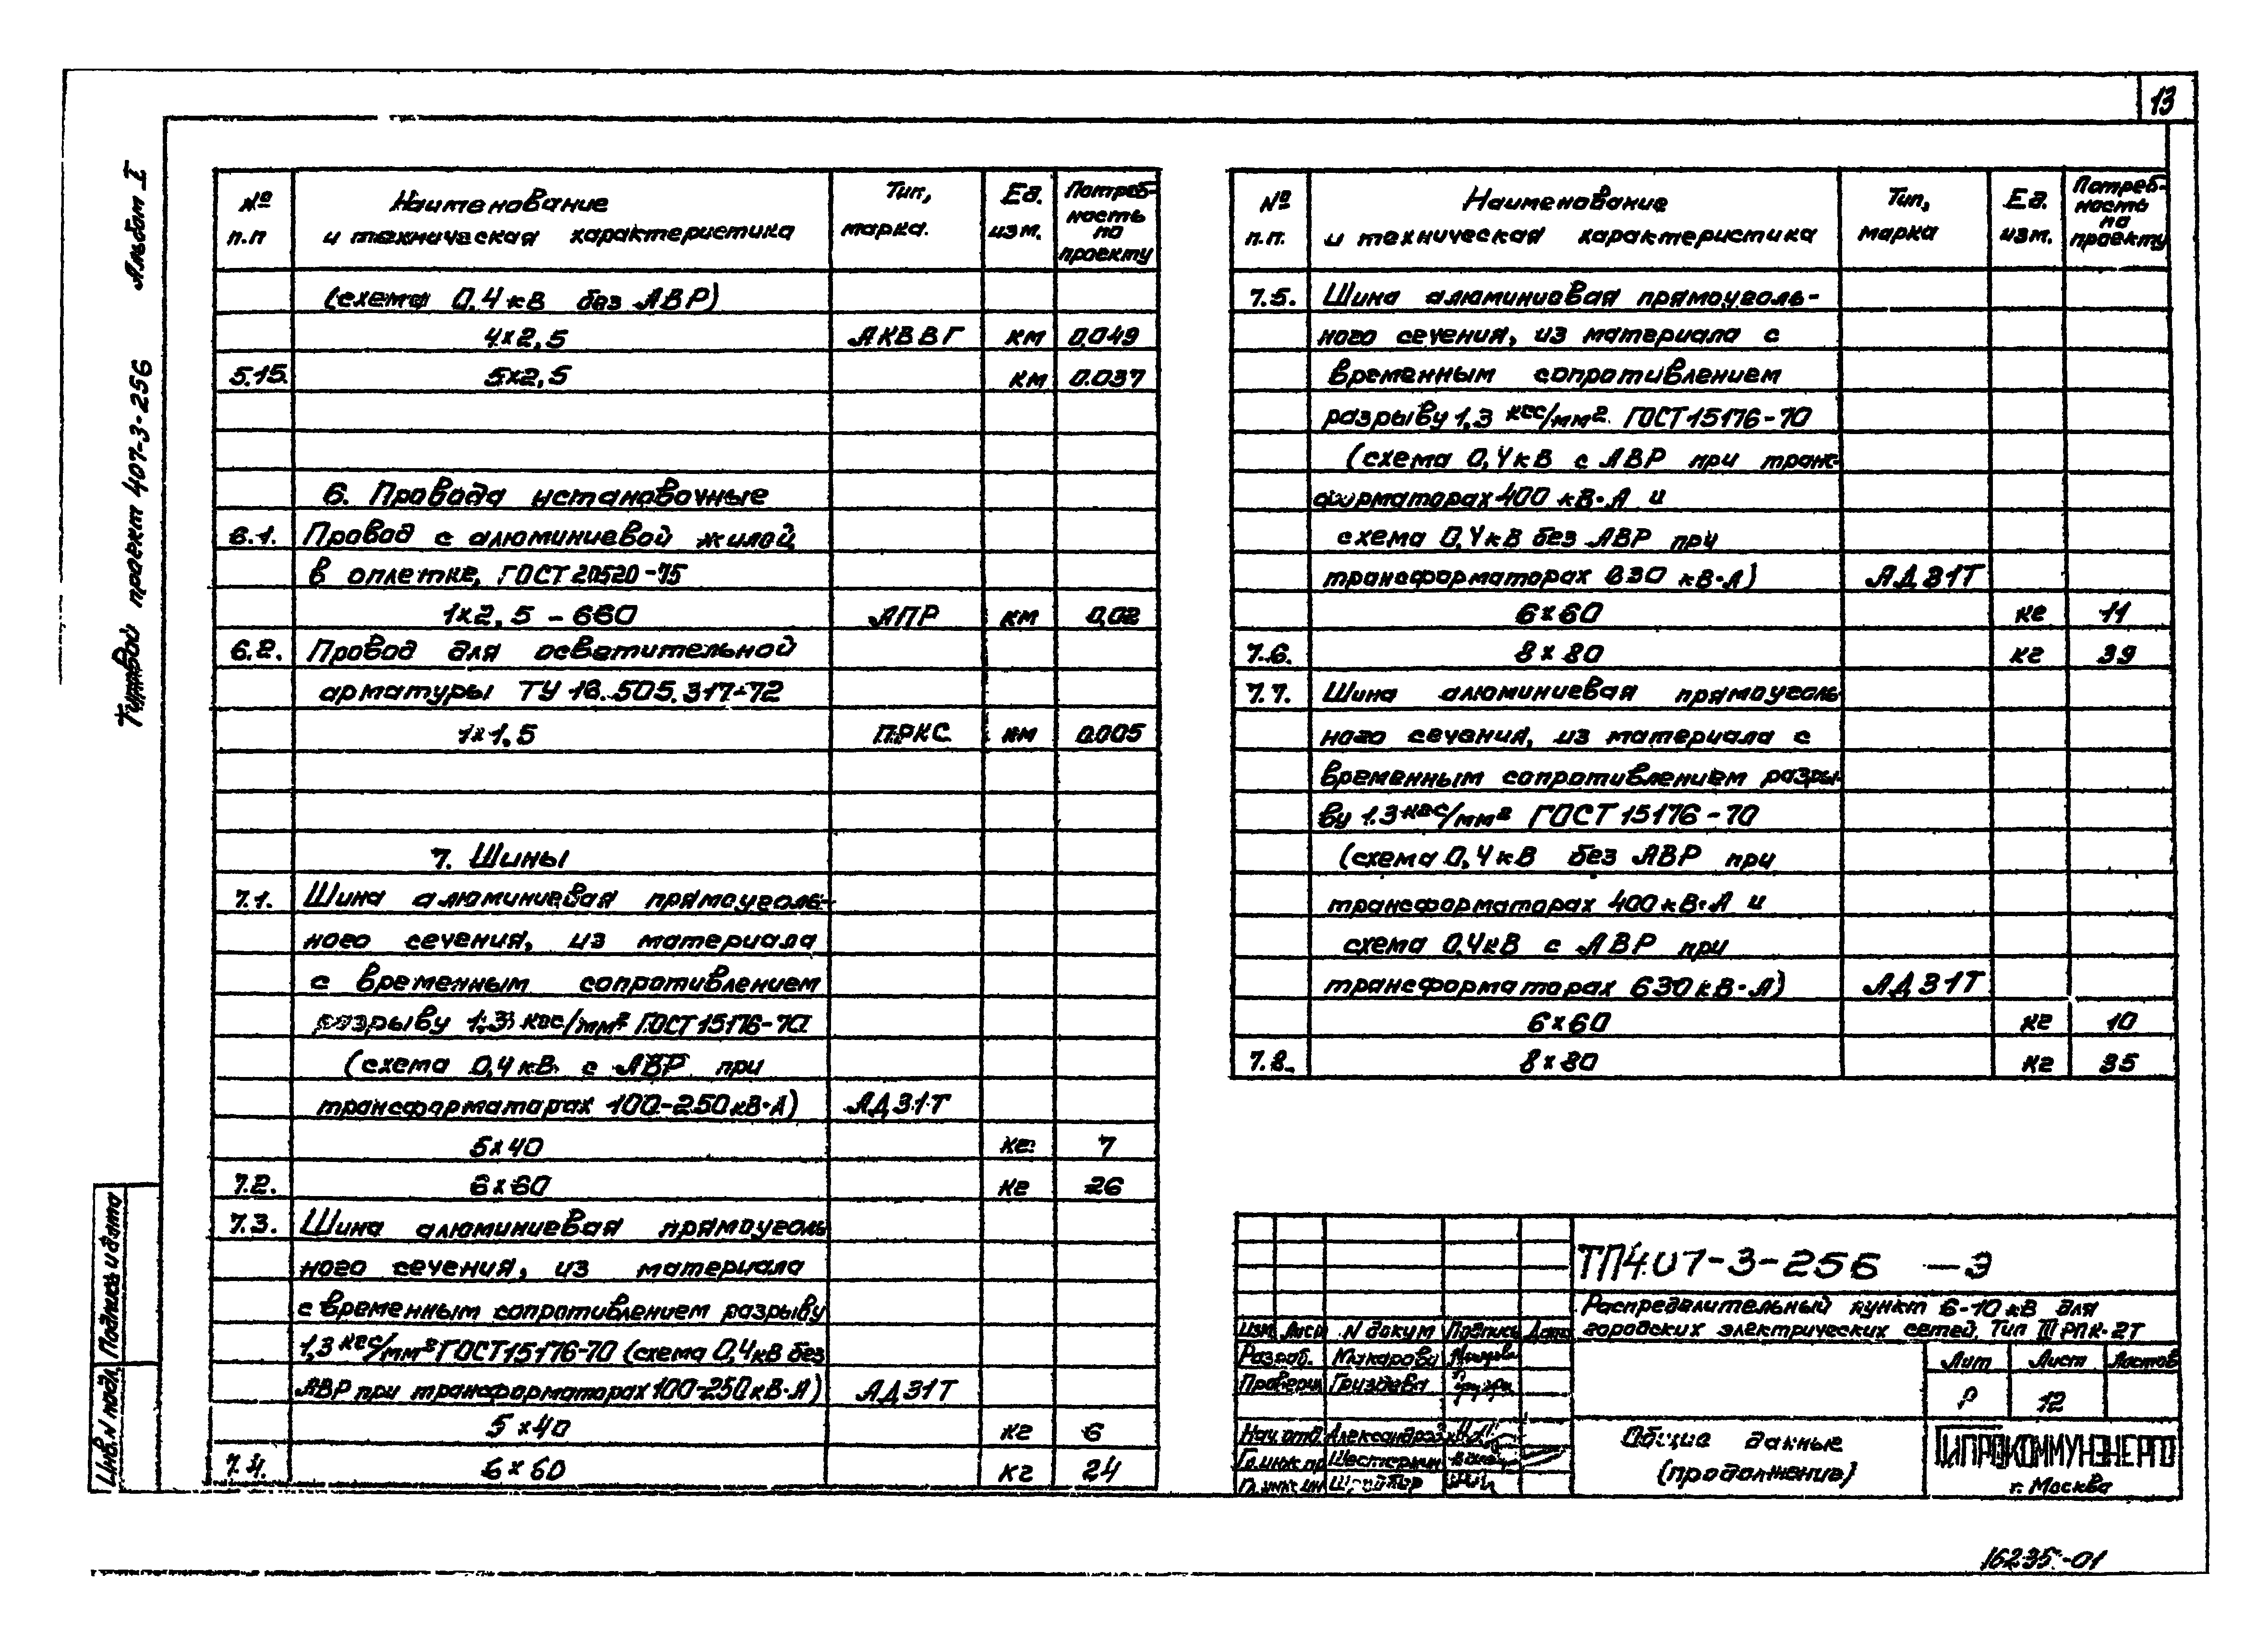 13
Альбом I
Типовой проект 407-3-256
№ п.п
Наименование и техническая характеристика
Тип, марка.
Ед. изм.
Потребность по проекту
(схема 0,4 кВ без АВР)
4×2,5 АКВВГ км 0,049
5.15. 5×2,5 км 0.037
6. Провода установочные
6.1. Провод с алюминиевой жилой
в оплетке, ГОСТ 20520-75
1×2,5 - 660 АПР км 0,02
6.2. Провод для осветительной
арматуры ТУ 16.505.317-72
1×1,5 ПРКС км 0.005
7. Шины
7.1. Шина алюминиевая прямоуголь-
ного сечения, из материала
с временным сопротивлением
разрыву 1,3 кгс/мм² ГОСТ 15176-70
(схема 0,4 кВ с АВР при
трансформаторах 100-250 кВ·А) АД31Т
5×40 кг 7
7.2. 6×60 кг 26
7.3. Шина алюминиевая прямоуголь
ного сечения, из материала
с временным сопротивлением разрыву
1,3 кгс/мм² ГОСТ 15176-70 (схема 0,4 кВ без
АВР при трансформаторах 100-250 кВ·А) АД31Т
5×40 кг 6
7.4. 6×60 кг 24
№ п.п.
Наименование и техническая характеристика
Тип, марка
Ед. изм.
Потреб-ность по проекту
7.5. Шина алюминиевая прямоуголь-
ного сечения, из материала с
временным сопротивлением
разрыву 1,3 кгс/мм² ГОСТ 15176-70
(схема 0,4 кВ с АВР при транс-
форматорах 400 кВ·А и
схема 0,4 кВ без АВР при
трансформаторах 630 кВ·А) АД31Т
6×60 кг 11
7.6. 8×80 кг 39
7.7. Шина алюминиевая прямоуголь
ного сечения, из материала с
временным сопротивлением разры-
ву 1.3 кгс/мм² ГОСТ 15176-70
(схема 0,4 кВ без АВР при
трансформаторах 400 кВ·А и
схема 0,4 кВ с АВР при
трансформаторах 630 кВ·А) АД31Т
6×60 кг 10
7.8. 8×80 кг 35
ТП407-3-256 -Э
Распределительный пункт 6-10 кВ для
городских электрических сетей, Тип III РПК-2Т
Изм Лист N докум Подпись Дата
Разраб. Макарова
Проверил Груздева
Нач. отд.
Гл. инж. пр
Лит Лист Листов
Р 12
Общие данные
(продолжение)
ГИПРОКОММУНЭНЕРГО
г. Москва
Инв. N подл. Подпись и дата
16235-01